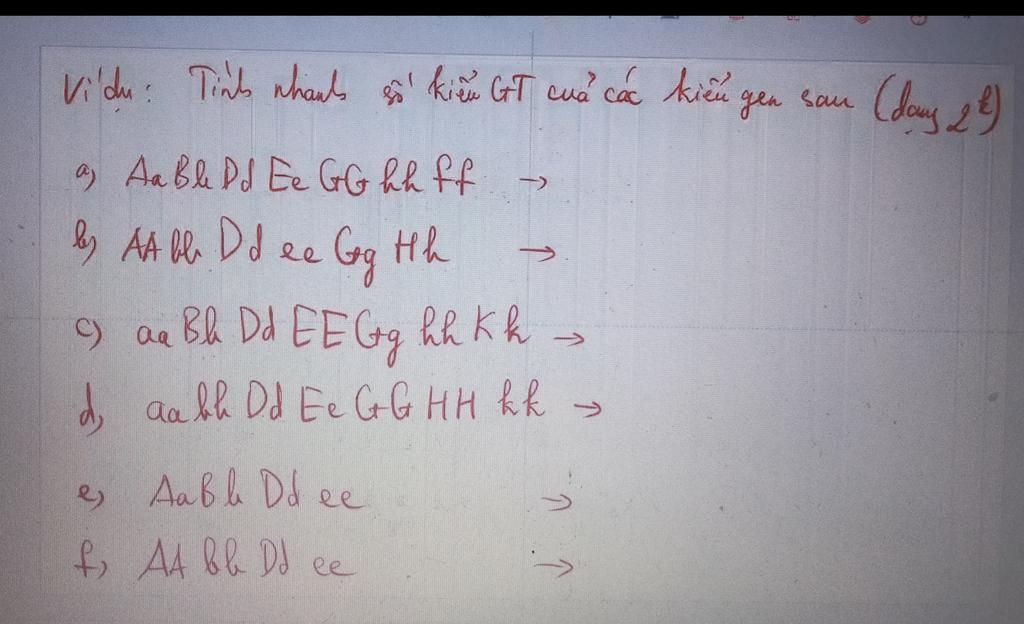 Ví dụ: Tính nhanh số kiểu GT của các kiểu gen sau (dạng 2^k)
a) AaBbDdEeGGhhff →
b) AAbbDdeeGgHh →
c) aaBbDdEEGghhKk →
d) aabbDdEeGGHHkk →
e) AaBbDdee →
f) AAbbDdee →